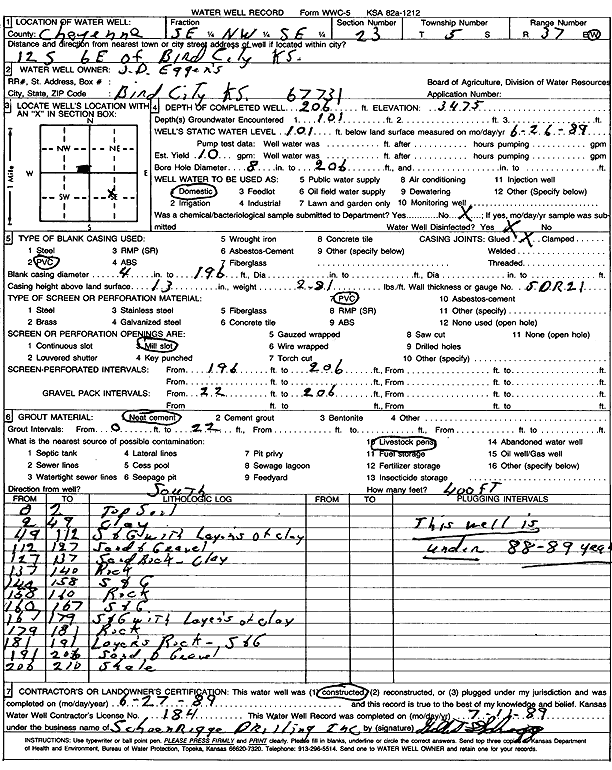 WATER WELL RECORD Form WWC-5 KSA 82a-1212
1 LOCATION OF WATER WELL: Fraction Section Number Township Number Range Number
County: Cheyenne SE ¼ NW ¼ SE ¼ 23 T 5 S R 37 E/W
Distance and direction from nearest town or city street address of well if located within city?
12 S 6E of Bird City KS.
2 WATER WELL OWNER: J.D. Eggers
RR#, St. Address, Box # : Board of Agriculture, Division of Water Resources
City, State, ZIP Code : Bird City KS. 67731 Application Number:
3 LOCATE WELL'S LOCATION WITH AN "X" IN SECTION BOX: 4 DEPTH OF COMPLETED WELL 206 ft. ELEVATION: 3475
Depth(s) Groundwater Encountered 1. 101 ft. 2. ft. 3. ft.
WELL'S STATIC WATER LEVEL 101 ft. below land surface measured on mo/day/yr 6-26-89
Pump test data: Well water was ft. after hours pumping gpm
Est. Yield 10 gpm: Well water was ft. after hours pumping gpm
Bore Hole Diameter 8 in. to 206 ft., and in. to ft.
WELL WATER TO BE USED AS: 5 Public water supply 8 Air conditioning 11 Injection well
Domestic 3 Feedlot 6 Oil field water supply 9 Dewatering 12 Other (Specify below)
2 Irrigation 4 Industrial 7 Lawn and garden only 10 Monitoring well
Was a chemical/bacteriological sample submitted to Department? Yes No X; If yes, mo/day/yr sample was submitted
Water Well Disinfected? Yes X No
N
NW NE
W E
SW SE
X
S
1 Mile
5 TYPE OF BLANK CASING USED: 5 Wrought iron 8 Concrete tile CASING JOINTS: Glued X Clamped
1 Steel 3 RMP (SR) 6 Asbestos-Cement 9 Other (specify below) Welded
2 PVC 4 ABS 7 Fiberglass Threaded
Blank casing diameter 4 in. to 196 ft., Dia in. to ft., Dia in. to ft.
Casing height above land surface 13 in., weight 2-81 lbs./ft. Wall thickness or gauge No. SDR21
TYPE OF SCREEN OR PERFORATION MATERIAL: 7 PVC 10 Asbestos-cement
1 Steel 3 Stainless steel 5 Fiberglass 8 RMP (SR) 11 Other (specify)
2 Brass 4 Galvanized steel 6 Concrete tile 9 ABS 12 None used (open hole)
SCREEN OR PERFORATION OPENINGS ARE: 5 Gauzed wrapped 8 Saw cut 11 None (open hole)
1 Continuous slot 3 Mill slot 6 Wire wrapped 9 Drilled holes
2 Louvered shutter 4 Key punched 7 Torch cut 10 Other (specify)
SCREEN-PERFORATED INTERVALS: From 196 ft. to 206 ft., From ft. to ft.
From ft. to ft., From ft. to ft.
GRAVEL PACK INTERVALS: From 22 ft. to 206 ft., From ft. to ft.
From ft. to ft., From ft. to ft.
6 GROUT MATERIAL: Neat cement 2 Cement grout 3 Bentonite 4 Other
Grout Intervals: From 0 ft. to 22 ft., From ft. to ft., From ft. to ft.
What is the nearest source of possible contamination: 10 Livestock pens 14 Abandoned water well
1 Septic tank 4 Lateral lines 7 Pit privy 11 Fuel storage 15 Oil well/Gas well
2 Sewer lines 5 Cess pool 8 Sewage lagoon 12 Fertilizer storage 16 Other (specify below)
3 Watertight sewer lines 6 Seepage pit 9 Feedyard 13 Insecticide storage
Direction from well? South How many feet? 400 FT
FROM TO LITHOLOGIC LOG FROM TO PLUGGING INTERVALS
0 2 Top Soil
2 49 Clay
49 112 S&G with Layers of clay
112 127 Sand & Gravel
127 137 Sand Rock - Clay
137 140 Rock
140 158 S&G
158 160 Rock
160 167 S&G
167 179 S&G with Layers of clay
179 181 Rock
181 191 Layers Rock - S&G
191 206 Sand & Gravel
206 210 Shale
This well is
under 88-89 year
7 CONTRACTOR'S OR LANDOWNER'S CERTIFICATION: This water well was (1) constructed, (2) reconstructed, or (3) plugged under my jurisdiction and was
completed on (mo/day/year) 6-27-89 and this record is true to the best of my knowledge and belief. Kansas
Water Well Contractor's License No. 184 This Water Well Record was completed on (mo/day/yr) 7-11-89
under the business name of Schoenrogge Drilling Inc by (signature)
INSTRUCTIONS: Use typewriter or ball point pen. PLEASE PRESS FIRMLY and PRINT clearly. Please fill in blanks, underline or circle the correct answers. Send top three copies to Kansas Department
of Health and Environment, Bureau of Water Protection, Topeka, Kansas 66620-7320. Telephone: 913-296-5514. Send one to WATER WELL OWNER and retain one for your records.